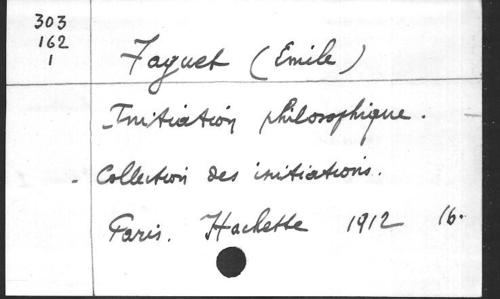 303
162
1
Faguet (Emile)
Initiation philosophique.
- Collection des initiations.
Paris. Hachette 1912 16.